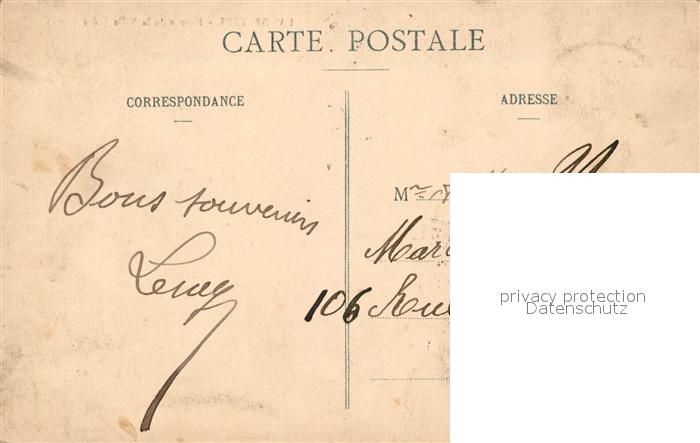 CARTE POSTALE
CORRESPONDANCE
ADRESSE
Bons souvenirs
M
Mar
106 Rue
privacy protection
Datenschutz